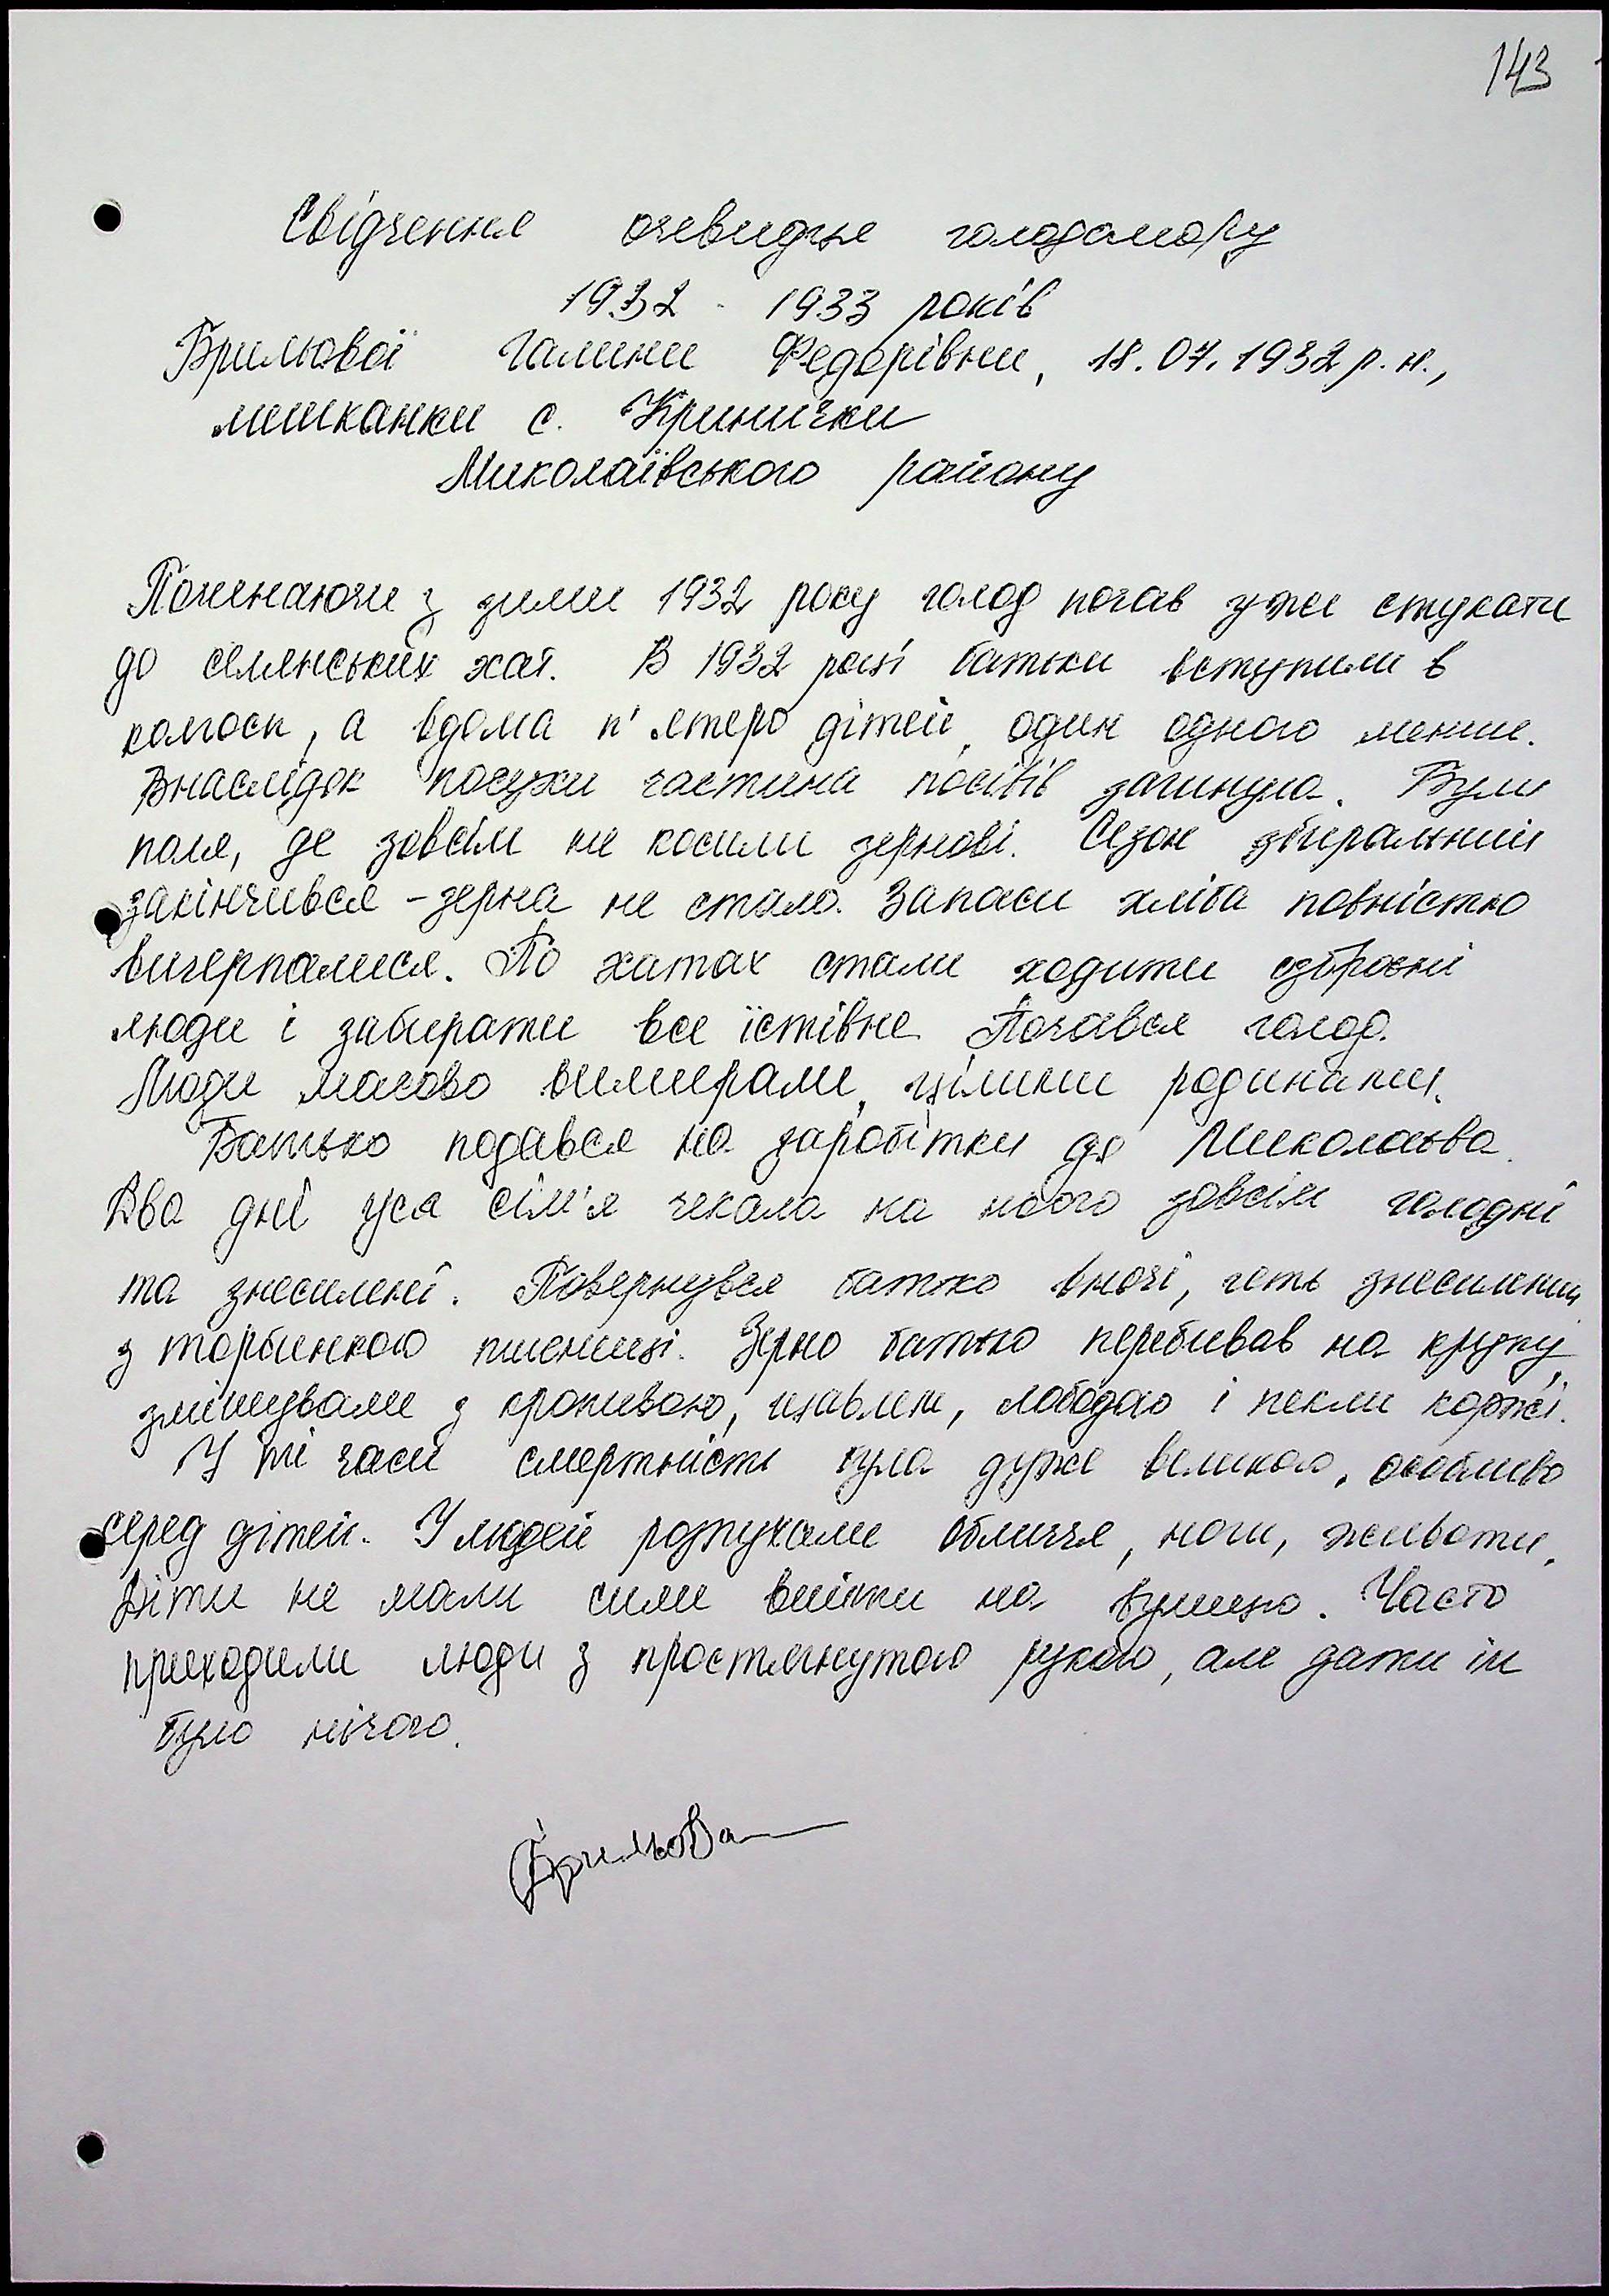 143
Свідчення очевидця голодомору
1932 - 1933 років
Брильової Галини Федорівни, 18.07.1932 р.н.,
мешканки с. Кринички
Миколаївського району
Починаючи з зими 1932 року голод почав уже стукати
до селянських хат. В 1932 році батьки вступили в
колгосп, а вдома п'ятеро дітей, один одного менше.
Внаслідок посухи частина посівів загинула. Були
поля, де зовсім не косили зернові. Сезон збиральний
закінчився - зерна не стало. Запаси хліба повністю
вичерпалися. По хатах стали ходити озброєні
люди і забирати все їстівне. Почався голод.
Люди масово вимирали, цілими родинами.
Батько подався на заробітки до Миколаєва.
Два дні уся сім'я чекала на нього зовсім голодні
та знесилені. Повернувся батько вночі, геть знесилений
з торбинкою пшениці. Зерно батько перебивав на крупу,
змішували з кропивою, щавлем, лободою і пекли коржі.
У ті часи смертність була дуже великою, особливо
серед дітей. У людей розпухали обличчя, ноги, животи.
Діти не мали сили вийти на вулицю. Часто
приходили люди з простягнутою рукою, але дати їм
було нічого.
Брильова